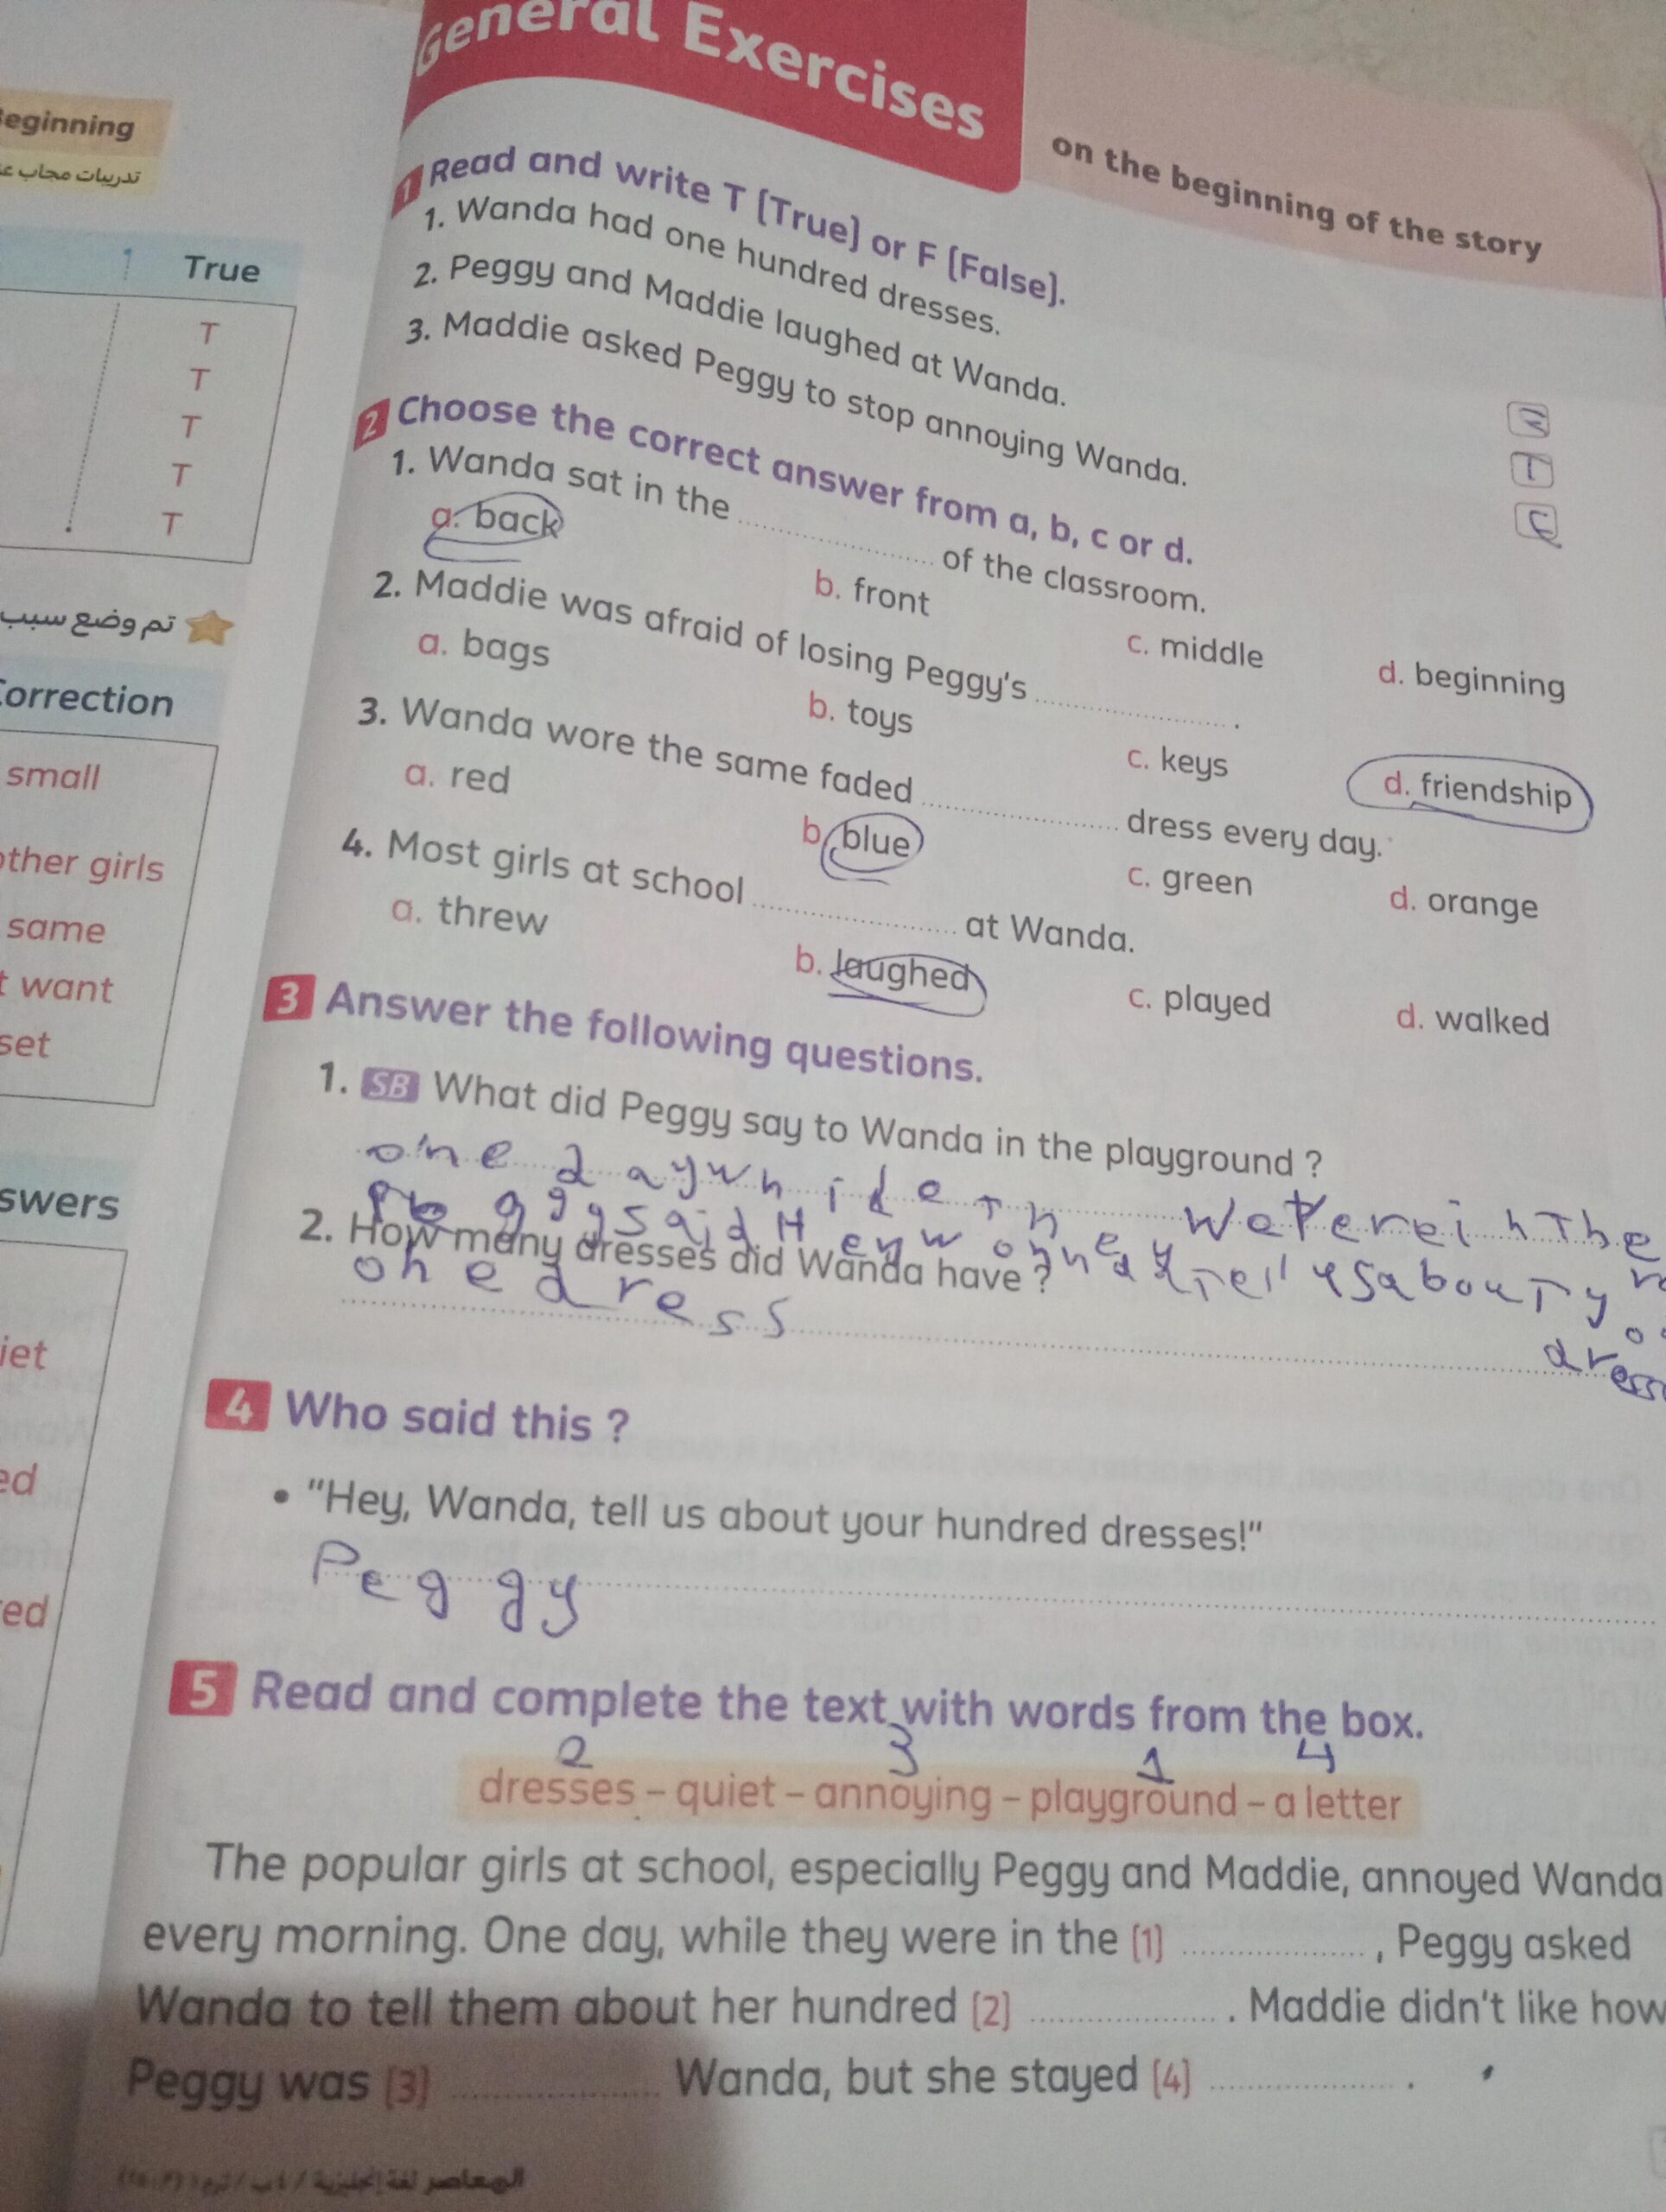 General Exercises
on the beginning of the story
eginning
تدريبات مجاب
True
T
T
T
T
T
تم وضع سبب
orrection
small
other girls
same
t want
set
swers
iet
ed
ed
1 Read and write T (True) or F (False).
1. Wanda had one hundred dresses.
2. Peggy and Maddie laughed at Wanda. T
3. Maddie asked Peggy to stop annoying Wanda.
2 Choose the correct answer from a, b, c or d.
1. Wanda sat in the .................... of the classroom.
a. back b. front c. middle d. beginning
2. Maddie was afraid of losing Peggy's .................... .
a. bags b. toys c. keys d. friendship
3. Wanda wore the same faded .................... dress every day.
a. red b. blue c. green d. orange
4. Most girls at school .................... at Wanda.
a. threw b. laughed c. played d. walked
3 Answer the following questions.
1. SB What did Peggy say to Wanda in the playground ?
one day The
Peggy said
2. How many dresses did Wanda have ?
one dress
4 Who said this ?
• "Hey, Wanda, tell us about your hundred dresses!"
Peggy
5 Read and complete the text with words from the box.
2 3 1 4
dresses – quiet – annoying – playground – a letter
The popular girls at school, especially Peggy and Maddie, annoyed Wanda
every morning. One day, while they were in the (1) .................... , Peggy asked
Wanda to tell them about her hundred (2) .................... . Maddie didn't like how
Peggy was (3) .................... Wanda, but she stayed (4) .................... .
المعاصر لغة إنجليزية